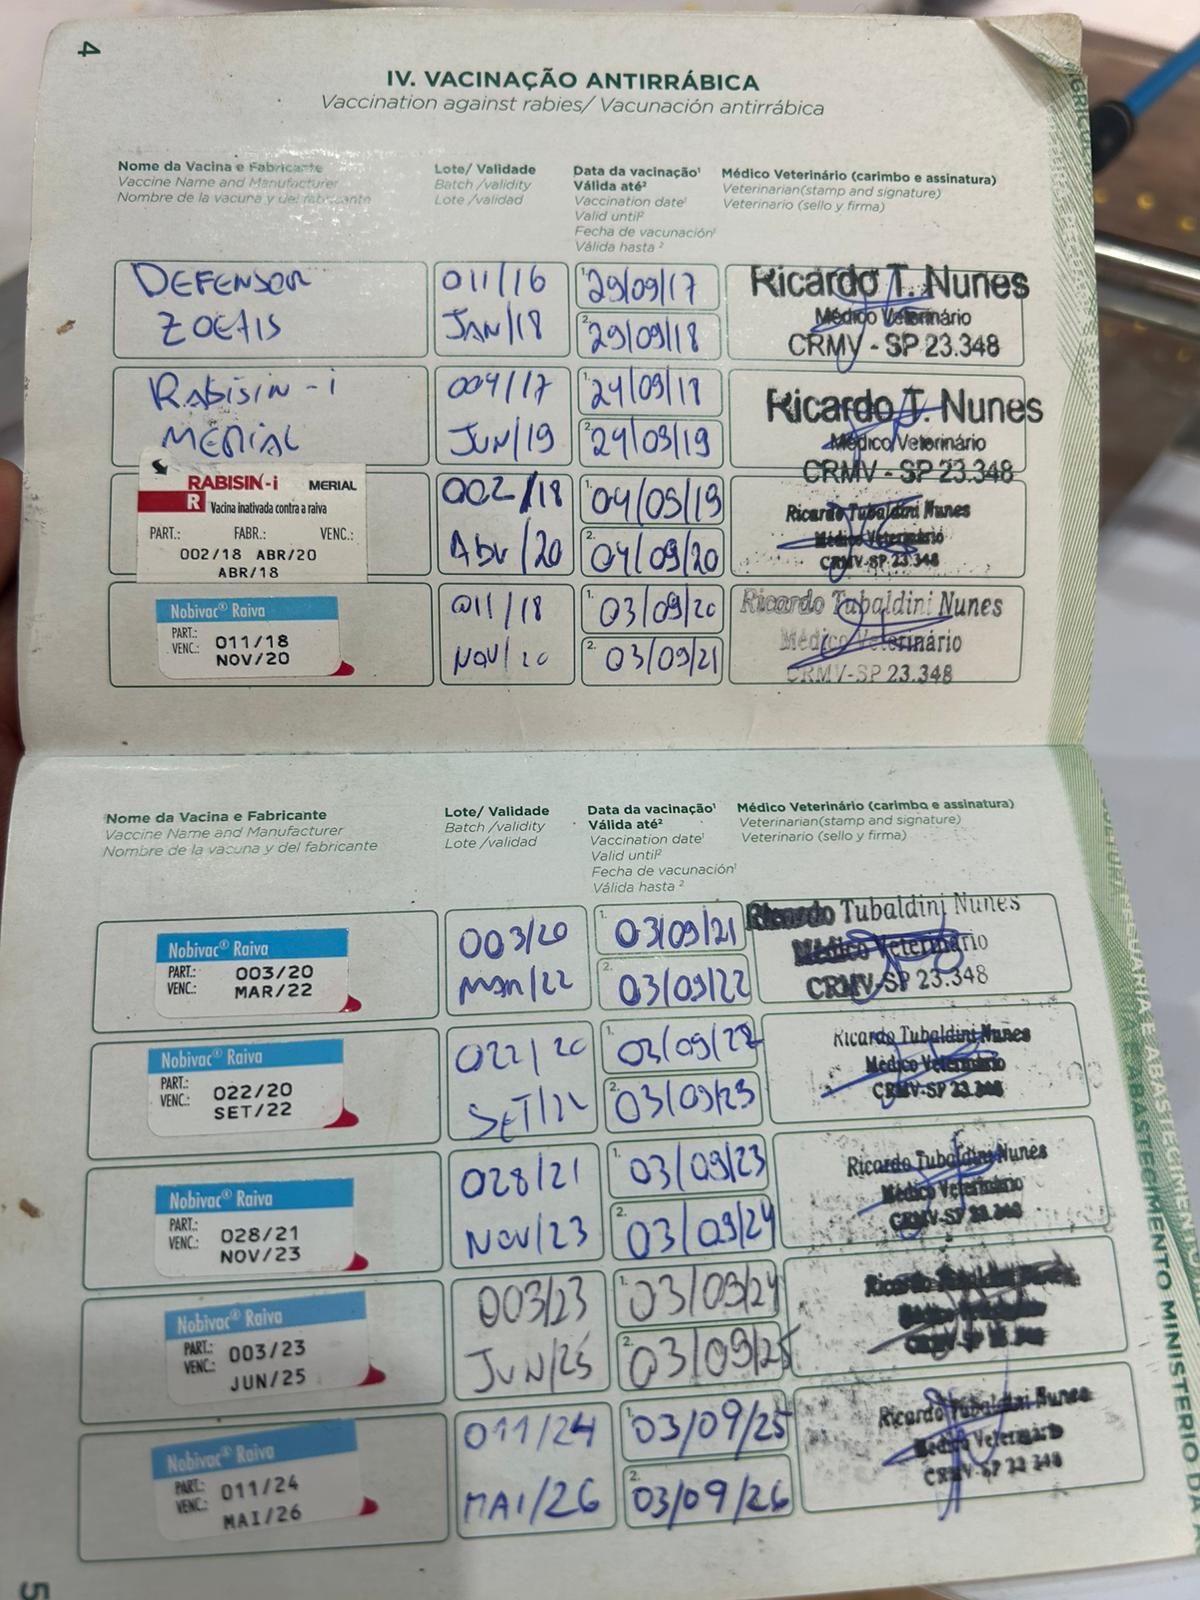 4
IV. VACINAÇÃO ANTIRRÁBICA
Vaccination against rabies/ Vacunación antirrábica
Nome da Vacina e Fabricante
Vaccine Name and Manufacturer
Nombre de la vacuna y del fabricante
Lote/ Validade
Batch /validity
Lote /validad
Data da vacinação¹
Válida até²
Vaccination date¹
Valid until²
Fecha de vacunación¹
Válida hasta ²
Médico Veterinário (carimbo e assinatura)
Veterinarian(stamp and signature)
Veterinario (sello y firma)
DEFENSOR
ZOETIS
011/16
JAN/18
1. 29/09/17
2. 29/09/18
Ricardo T. Nunes
Médico Veterinário
CRMV - SP 23.348
RABISIN-i
MERIAL
004/17
JUN/19
1. 24/09/18
2. 24/09/19
Ricardo T. Nunes
Médico Veterinário
CRMV - SP 23.348
RABISIN-i MERIAL
R Vacina inativada contra a raiva
PART.: FABR.: VENC.:
002/18 ABR/20
ABR/18
002/18
Abr/20
1. 04/09/19
2. 04/09/20
Ricardo Tubaldini Nunes
Médico Veterinário
CRMV-SP 23.348
Nobivac® Raiva
PART.: 011/18
VENC.: NOV/20
011/18
NOV/20
1. 03/09/20
2. 03/09/21
Ricardo Tubaldini Nunes
Médico Veterinário
CRMV-SP 23.348
Nome da Vacina e Fabricante
Vaccine Name and Manufacturer
Nombre de la vacuna y del fabricante
Lote/ Validade
Batch /validity
Lote /validad
Data da vacinação¹
Válida até²
Vaccination date¹
Valid until²
Fecha de vacunación¹
Válida hasta ²
Médico Veterinário (carimbo e assinatura)
Veterinarian(stamp and signature)
Veterinario (sello y firma)
Nobivac® Raiva
PART.: 003/20
VENC.: MAR/22
003/20
MAR/22
1. 03/09/21
2. 03/09/22
Ricardo Tubaldini Nunes
Médico Veterinário
CRMV-SP 23.348
Nobivac® Raiva
PART.: 022/20
VENC.: SET/22
022/20
SET/22
1. 03/09/22
2. 03/09/23
Ricardo Tubaldini Nunes
Médico Veterinário
CRMV-SP 23.348
Nobivac® Raiva
PART.: 028/21
VENC.: NOV/23
028/21
NOV/23
1. 03/09/23
2. 03/09/24
Ricardo Tubaldini Nunes
Médico Veterinário
CRMV-SP 23.348
Nobivac® Raiva
PART.: 003/23
VENC.: JUN/25
003/23
JUN/25
1. 03/09/24
2. 03/09/25
Ricardo Tubaldini Nunes
Médico Veterinário
CRMV-SP 23.348
Nobivac® Raiva
PART.: 011/24
VENC.: MAI/26
011/24
MAI/26
1. 03/09/25
2. 03/09/26
Ricardo Tubaldini Nunes
Médico Veterinário
CRMV-SP 23 348
5